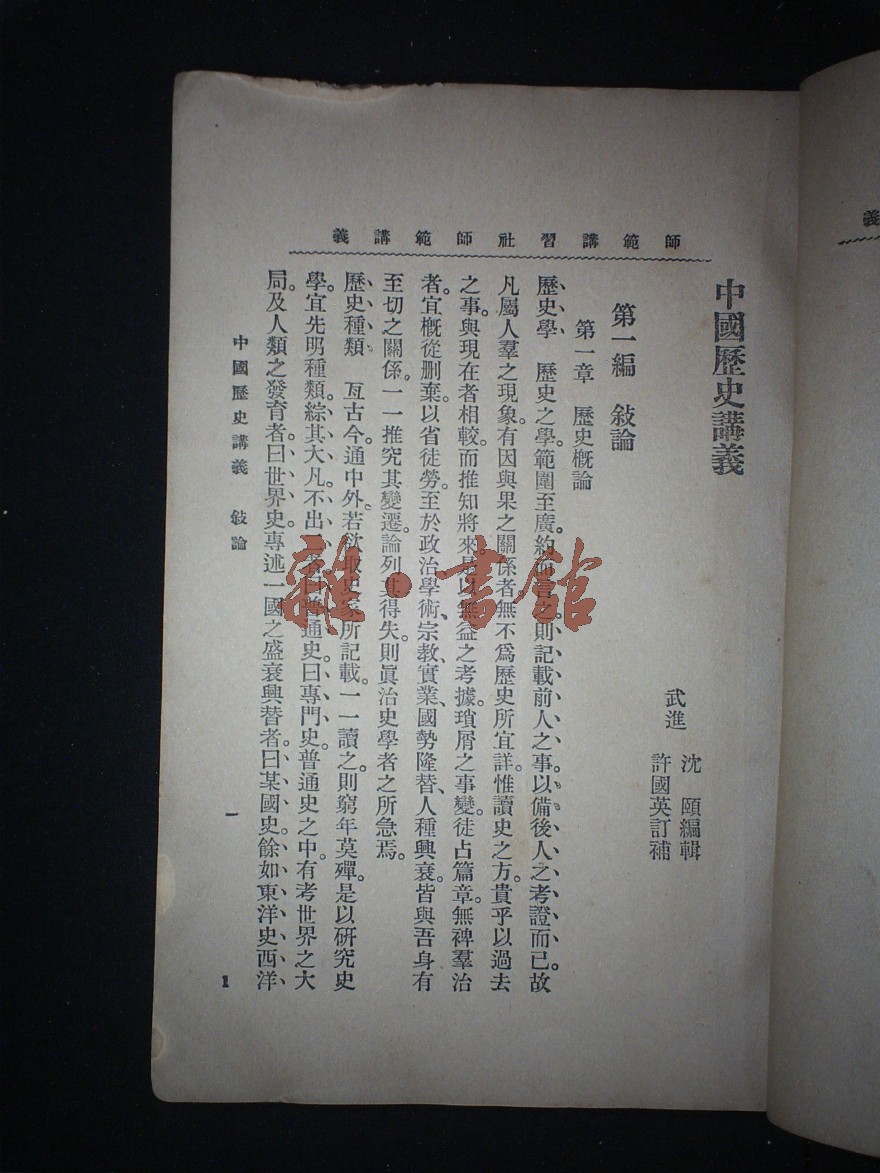 師範講習社師範講義
中國歷史講義
武進 沈 頤編輯
許國英訂補
第一編 敍論
第一章 歷史槪論
歷史學 歷史之學。範圍至廣。約而言之。則記載前人之事。以備後人之考證而已。故
凡屬人羣之現象。有因與果之關係者。無不爲歷史所宜詳。惟讀史之方。貴乎以過去
之事。與現在者相較。而推知將來。是以無益之考據。瑣屑之事變。徒占篇章。無裨羣治
者。宜槪從删棄。以省徒勞。至於政治學術、宗教、實業、國勢隆替、人種興衰。皆與吾身有
至切之關係。一一推究其變遷。論列其得失。則眞治史學者之所急焉。
歷史種類 亙古今。通中外。若欲取史家所記載。一一讀之。則窮年莫殫。是以硏究史
學。宜先明種類。綜其大凡。不出二者。曰普通史。曰專門史。普通史之中。有考世界之大
局。及人類之發育者。曰世界史。專述一國之盛衰興替者。曰某國史。餘如東洋史西洋
中國歷史講義 敍論
一
1
雜·書館
義